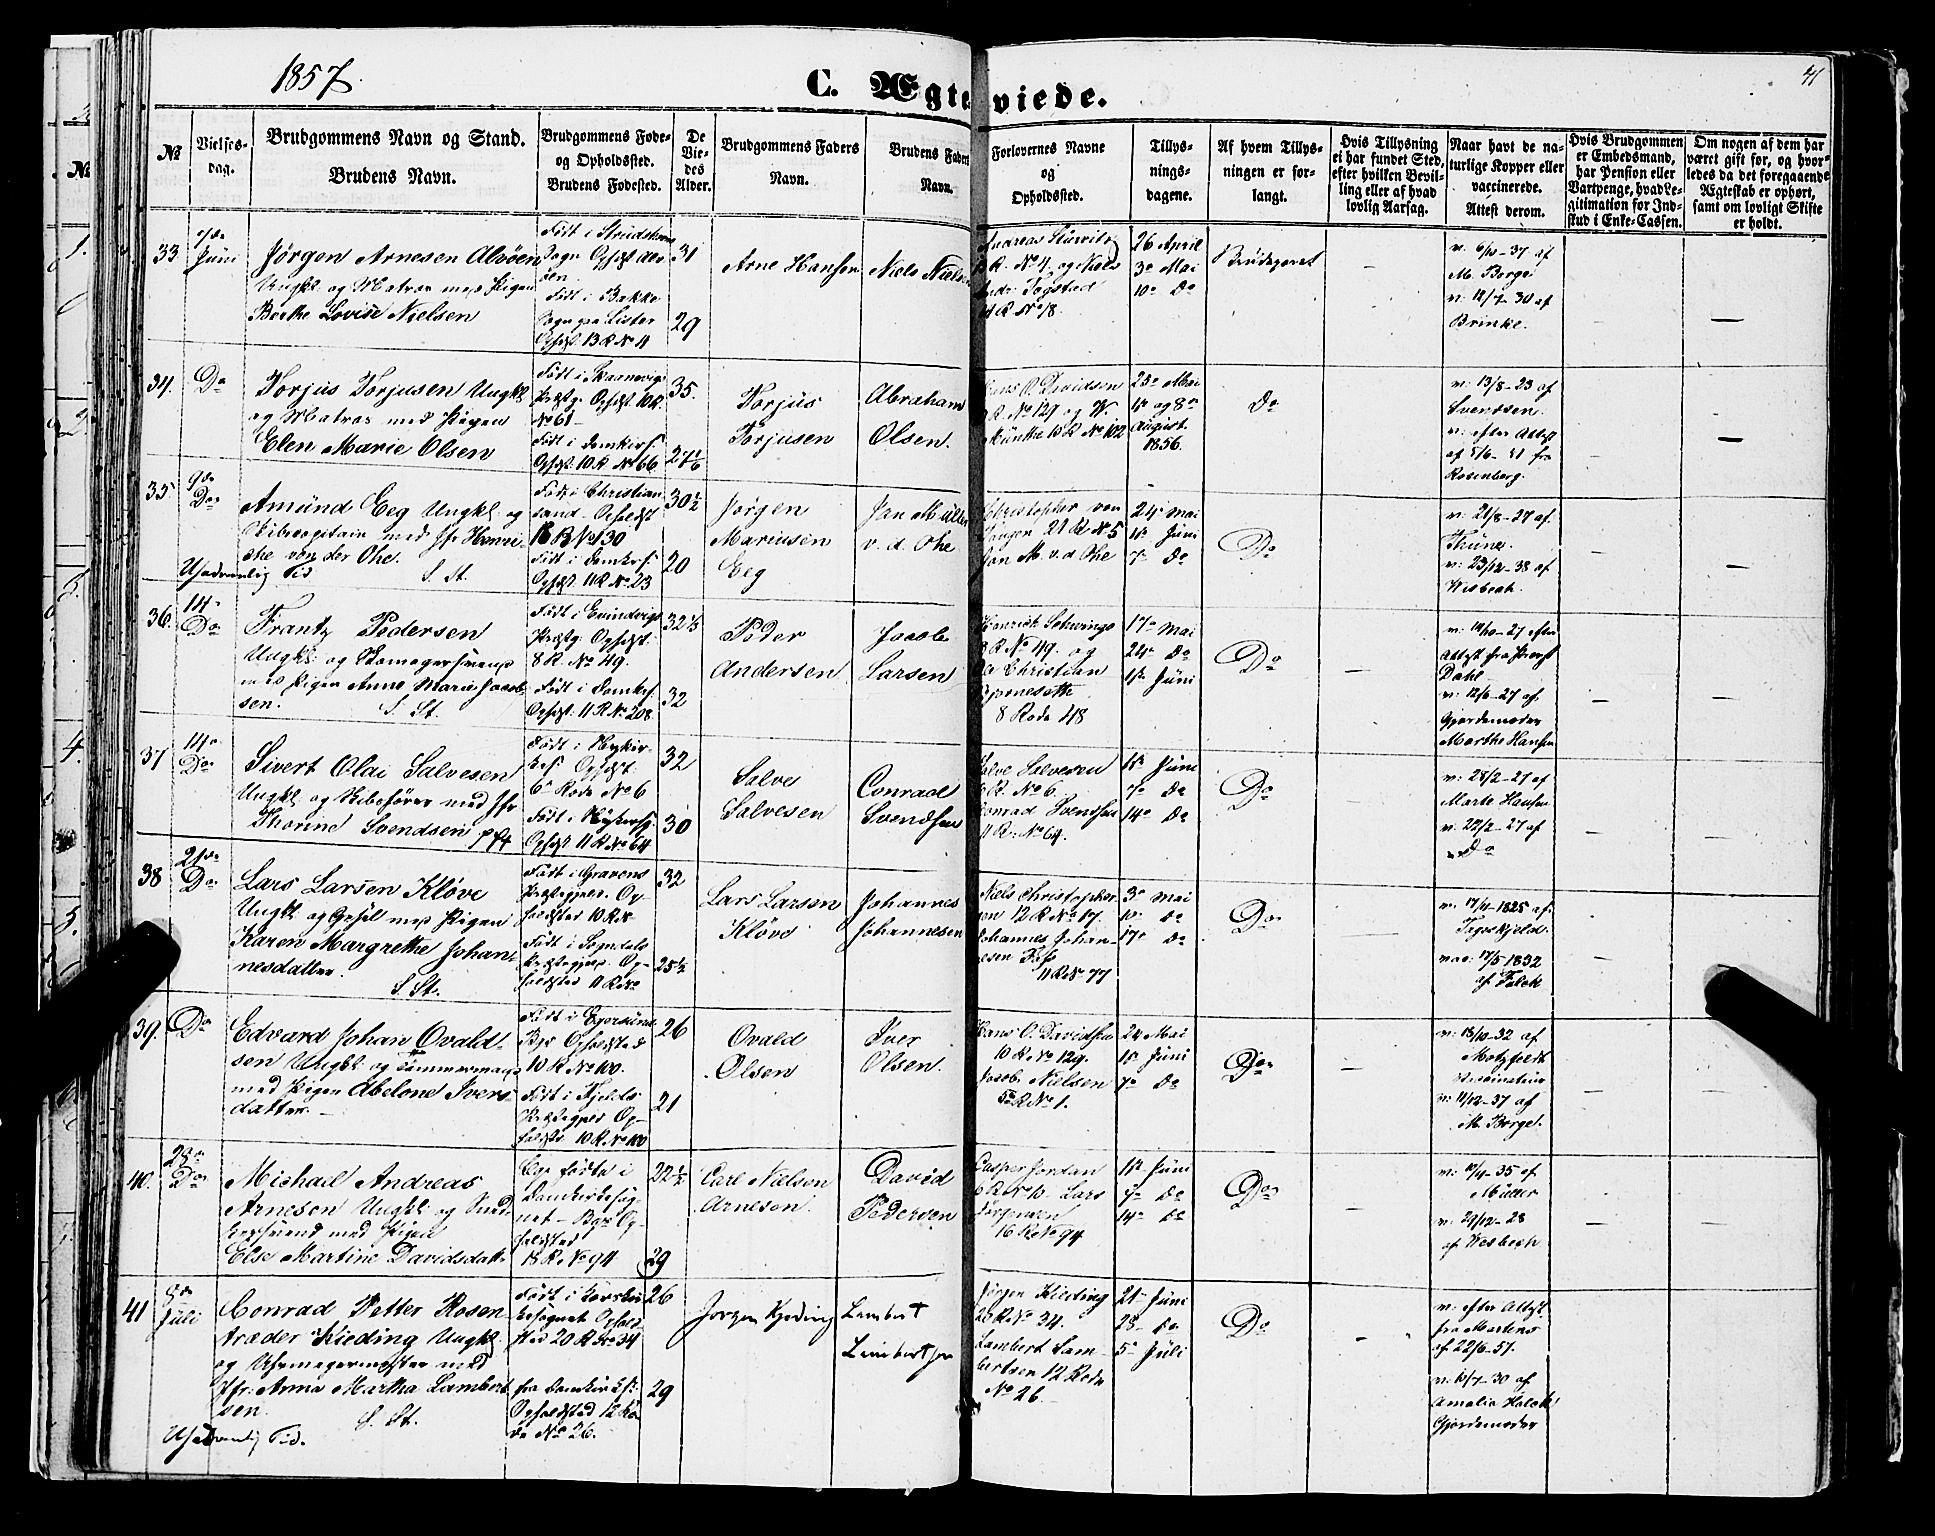 1857
C. Ægteviede.
41
№
Vielses-
dag.
Brudgommens Navn og Stand.
Brudens Navn.
Brudgommens Føde-
og Opholdssted.
Brudens Fødested.
De
Vie-
des
Alder.
Brudgommens Faders
Navn.
Brudens Faders
Navn.
Forlovernes Navne
og
Opholdssted.
Tillys-
nings-
dagene.
Af hvem Tillys-
ningen er for-
langt.
Hvis Tillysning
ei har fundet Sted,
efter hvilken Bevil-
ling eller af hvad
lovlig Aarsag.
Naar havt de na-
turlige Kopper eller
vaccinerede.
Attest derom.
Hvis Brudgommen
er Embedsmand,
har Pension eller
Vartpenge, hvad Le-
gitimation for Ind-
skud i Enke-Cassen.
Om nogen af dem har
været gift før, og hvor-
ledes da det foregaaende
Ægteskab er ophørt,
samt om lovligt Skifte
er holdt.
33
Juni
Jørgen Arnesen Alvøen
Ungkl og Matros med Pigen
Berthe Lovise Nielsen
Født i Bakke
Sogn paa Lister
Opholdst. 13 R № 4
31
29
Arne Hansen
Niels Nielsen
26 April
3e Mai
10e Do
Brudeparet
v: 6/10-37 af
M. Borge
v: 12/7-30 af
Brinke.
34.
Do
Torjus Torjusen Ungkl
og Matros med Pigen
Elen Marie Olsen
Født i Skaanevigs
Præstg. Opholdst 10 R.
№ 61
Født i Domkirks.
Opholdst. 10 R. № 66
35.
27 1/6
Torjus
Torjusen
Abraham
Olsen.
Hans O. Davidsen
R. № 129 og W.
Münthe 10 R № 102
25e Mai
1e og 8e
August
1856.
Do
v: 13/8-23 af
Svendsen.
v: efter Attest
af 5/6-51 fra
Rosenberg.
35
9de
Do
Amünd Eeg Ungkl og
Skibscapitain med Jfr Henri-
che von der Ohe.
Usædvanlig Tid S. St.
Født i Christian
sand Opholdst
13 R № 130
Født i Domkirks.
Opholdst. 11 R № 23
30 1/2
20
Jørgen
Mariusen
Eeg
Jan Müller
v. d. Ohe
Christopher von
Tangen 21 R № 5
Jan M. v. d. Ohe
24e Mai
1e Juni
7e Do
Do
v: 21/8-27 af
Thüne.
v: 23/12-38 af
Wesbech.
36.
14e
Do
Frantz Pedersen
Ungkl og Skomagersvend
med Pigen Anne Marie Jacob-
sen. S. St.
Født i Evindvigs
Præstg. Opholdst.
8 R. № 49.
Født i Domkirks.
Opholdst. 11 R № 208
32 1/3
32
Peder
Andersen
Jacob
Larsen
Henrich Schwings
8 R № 49. og
Christian
8 Rode 418
17e Mai
24e Do
1e Juni
Do
v: 10/10-27 efter
Attest fra Provst
Dahl
v: 12/6-27 af
Gjordemoder
Marthe Hansen
37
14e
Do
Sivert Olai Salvesen
Ungkl og Skibsfører med Jfr
Thorine Svendsen
Født i Nykir-
kes. Opholdst.
6e Rode № 6
Født i Nykirks.
Opholdst 11 R № 64
32
30
Salve
Salvesen
Conrad
Svendsen
Salve Salvesen
R. № 6.
Conrad Svendsen
11 R. № 64.
1e Juni
7e Do
14e Do
Do
v: 28/2-27 af
Marte Hansen
v: 22/2-27 af
Do
38
21de
Do
Lars Larsen Kløve
Ungkl og Gesel med Pigen
Karen Margrethe Johan-
nesdatter. S. St.
Født i Gravens
Præstegjeld. Op-
holdsted 10 R №
Født i Sogndals
Præstegjeld Op-
holdsted 11 R №
32
25 1/2
Lars Larsen
Kløve
Johannes
Johannesen
Niels Christopher
sen 12 R № 17.
Johannes Johan-
nesen
11 R № 77
3e Mai
10e Do
17e Do
Do
v: 17/4-1825 af
v: 17/5-1832
af Falck
39.
Do
Edvard Johan Ovald-
sen Ungkl og Tømmermand
med Pigen Abelone Ivers-
datter.
Født i Egersund
By Opholdsted
10 R. № 100.
Født i Fjelds
Præstegjeld Op-
holdsted 10 R. № 100
26
21
Ovald
Olsen
Iver
Olsen.
Hans O. Davidsen
10 R. № 129.
Jacob Nielsen
5 R № 1.
24 Mai
1e Juni
7e Do
Do
v: 18/10-32 af
Motzfeldt
v: 11/12-37 af
M. Borge.
40.
Do
Michael Andreas
Arnesen Ungkl og Sned-
kersvend med Pigen
Else Martine Davidsdatt.
Bge fødte i
Domkirkesog-
net - Bges Op-
holdsted
13 R. № 94
22 1/2
29
Carl Nielsen
Arnesen.
David
Pedersen
Casper Jordan
6 R № 10. Lars
Jørgensen
16 R № 94
1e Juni
7e Do
14e Do
Do
v: 10/4-35 af
Müller
v: 29/12-28
af Wesbech
41
5te
Juli
Conrad Petter Rosen-
træder Kieding Ungkl.
og Uhrmagermester med
Jfr: Anna Martha Lambert
sen. S. St.
Usædvanlig Tid.
Født i Korskir-
kesognet Ophold-
sted 20 R № 34
fra Domkirks:
Opholdsted 12 Ro-
de № 26.
26
29
Jørgen Kjeding
Lambert
Lambertsen
Jørgen Kieding
20 R № 34.
Lambert Lam-
bertsen 12 Rode
№ 26
21e Juni
28e Do
5e Juli
Do
v: efter Attest
fra Martens
af 22/6-51.
v: 13/7-30 af
Amalia Holck
Gjordemoder